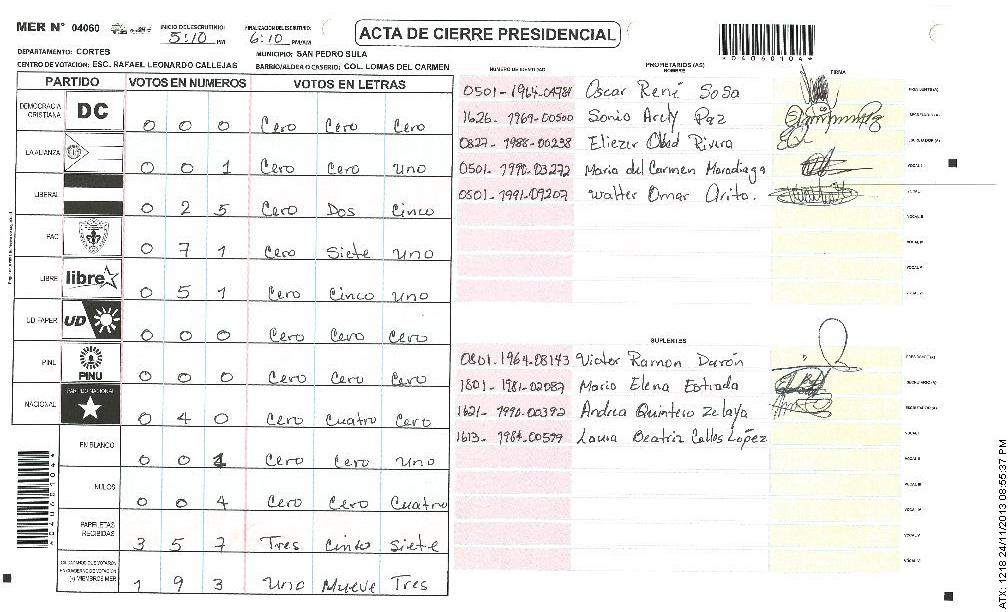 MER N° 04060
INICIO DEL ESCRUTINIO: 5:10 PM
FINALIZACION DEL ESCRUTINIO: 6:10 PM/AM
ACTA DE CIERRE PRESIDENCIAL
*04060104*
DEPARTAMENTO: CORTES
MUNICIPIO: SAN PEDRO SULA
CENTRO DE VOTACION: ESC. RAFAEL LEONARDO CALLEJAS
BARRIO/ALDEA O CASERIO: COL. LOMAS DEL CARMEN
PARTIDO VOTOS EN NUMEROS VOTOS EN LETRAS
DEMOCRACIA CRISTIANA DC 0 0 0 Cero Cero Cero
LA ALIANZA 0 0 1 Cero Cero uno
LIBERAL 0 2 5 Cero Dos Cinco
PAC 0 7 1 Cero Siete uno
LIBRE libre 0 5 1 Cero Cinco uno
UD FAPER UD 0 0 0 Cero Cero Cero
PINU PINU 0 0 0 Cero Cero Cero
NACIONAL PARTIDO NACIONAL 0 4 0 Cero Cuatro Cero
EN BLANCO 0 0 1 Cero Cero uno
NULOS 0 0 4 Cero Cero Cuatro
PAPELETAS RECIBIDAS 3 5 7 Tres Cinco Siete
CIUDADANOS QUE VOTARON EN CUADERNO DE VOTACION (+) MIEMBROS MER 1 9 3 Uno Nueve Tres
NUMERO DE IDENTIDAD
PROPIETARIOS (AS)
NOMBRE
FIRMA
0501-1964-04784 Oscar René Sosa PRESIDENTE(A)
1626-1969-00500 Sonia Arely Paz SECRETARIO(A)
0827-1988-00238 Eliezer Obed Rivera ESCRUTADOR(A)
0501-1990-03272 Maria del Carmen Maradiaga VOCAL I
0501-1991-09207 Walter Omar Arita. VOCAL II
VOCAL III
VOCAL IV
VOCAL V
VOCAL VI
SUPLENTES
0801-1964-08143 Victor Ramon Darón PRESIDENTE(A)
1801-1981-02087 Maria Elena Estrada SECRETARIO(A)
1621-1990-00392 Andrea Quintero Zelaya ESCRUTADOR(A)
1613-1984-00599 Laura Beatriz Calles López VOCAL I
VOCAL II
VOCAL III
VOCAL IV
VOCAL V
VOCAL VI
*04060104*
ATX: 1218 24/11/2013 08:55:37 PM